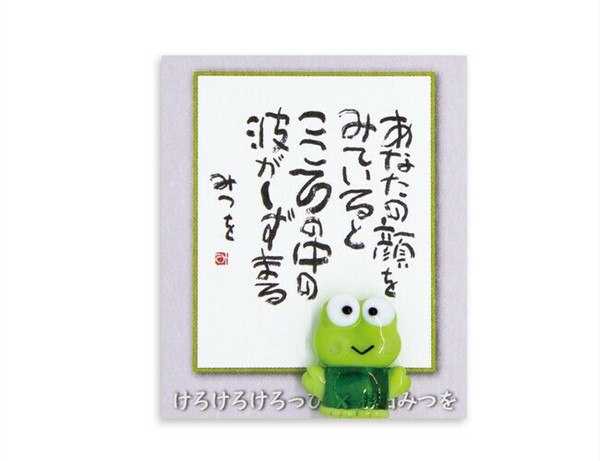 あなたの顔を
みていると
こころの中の
波がしずまる
みつを
けろけろけろっぴ × 田みつを